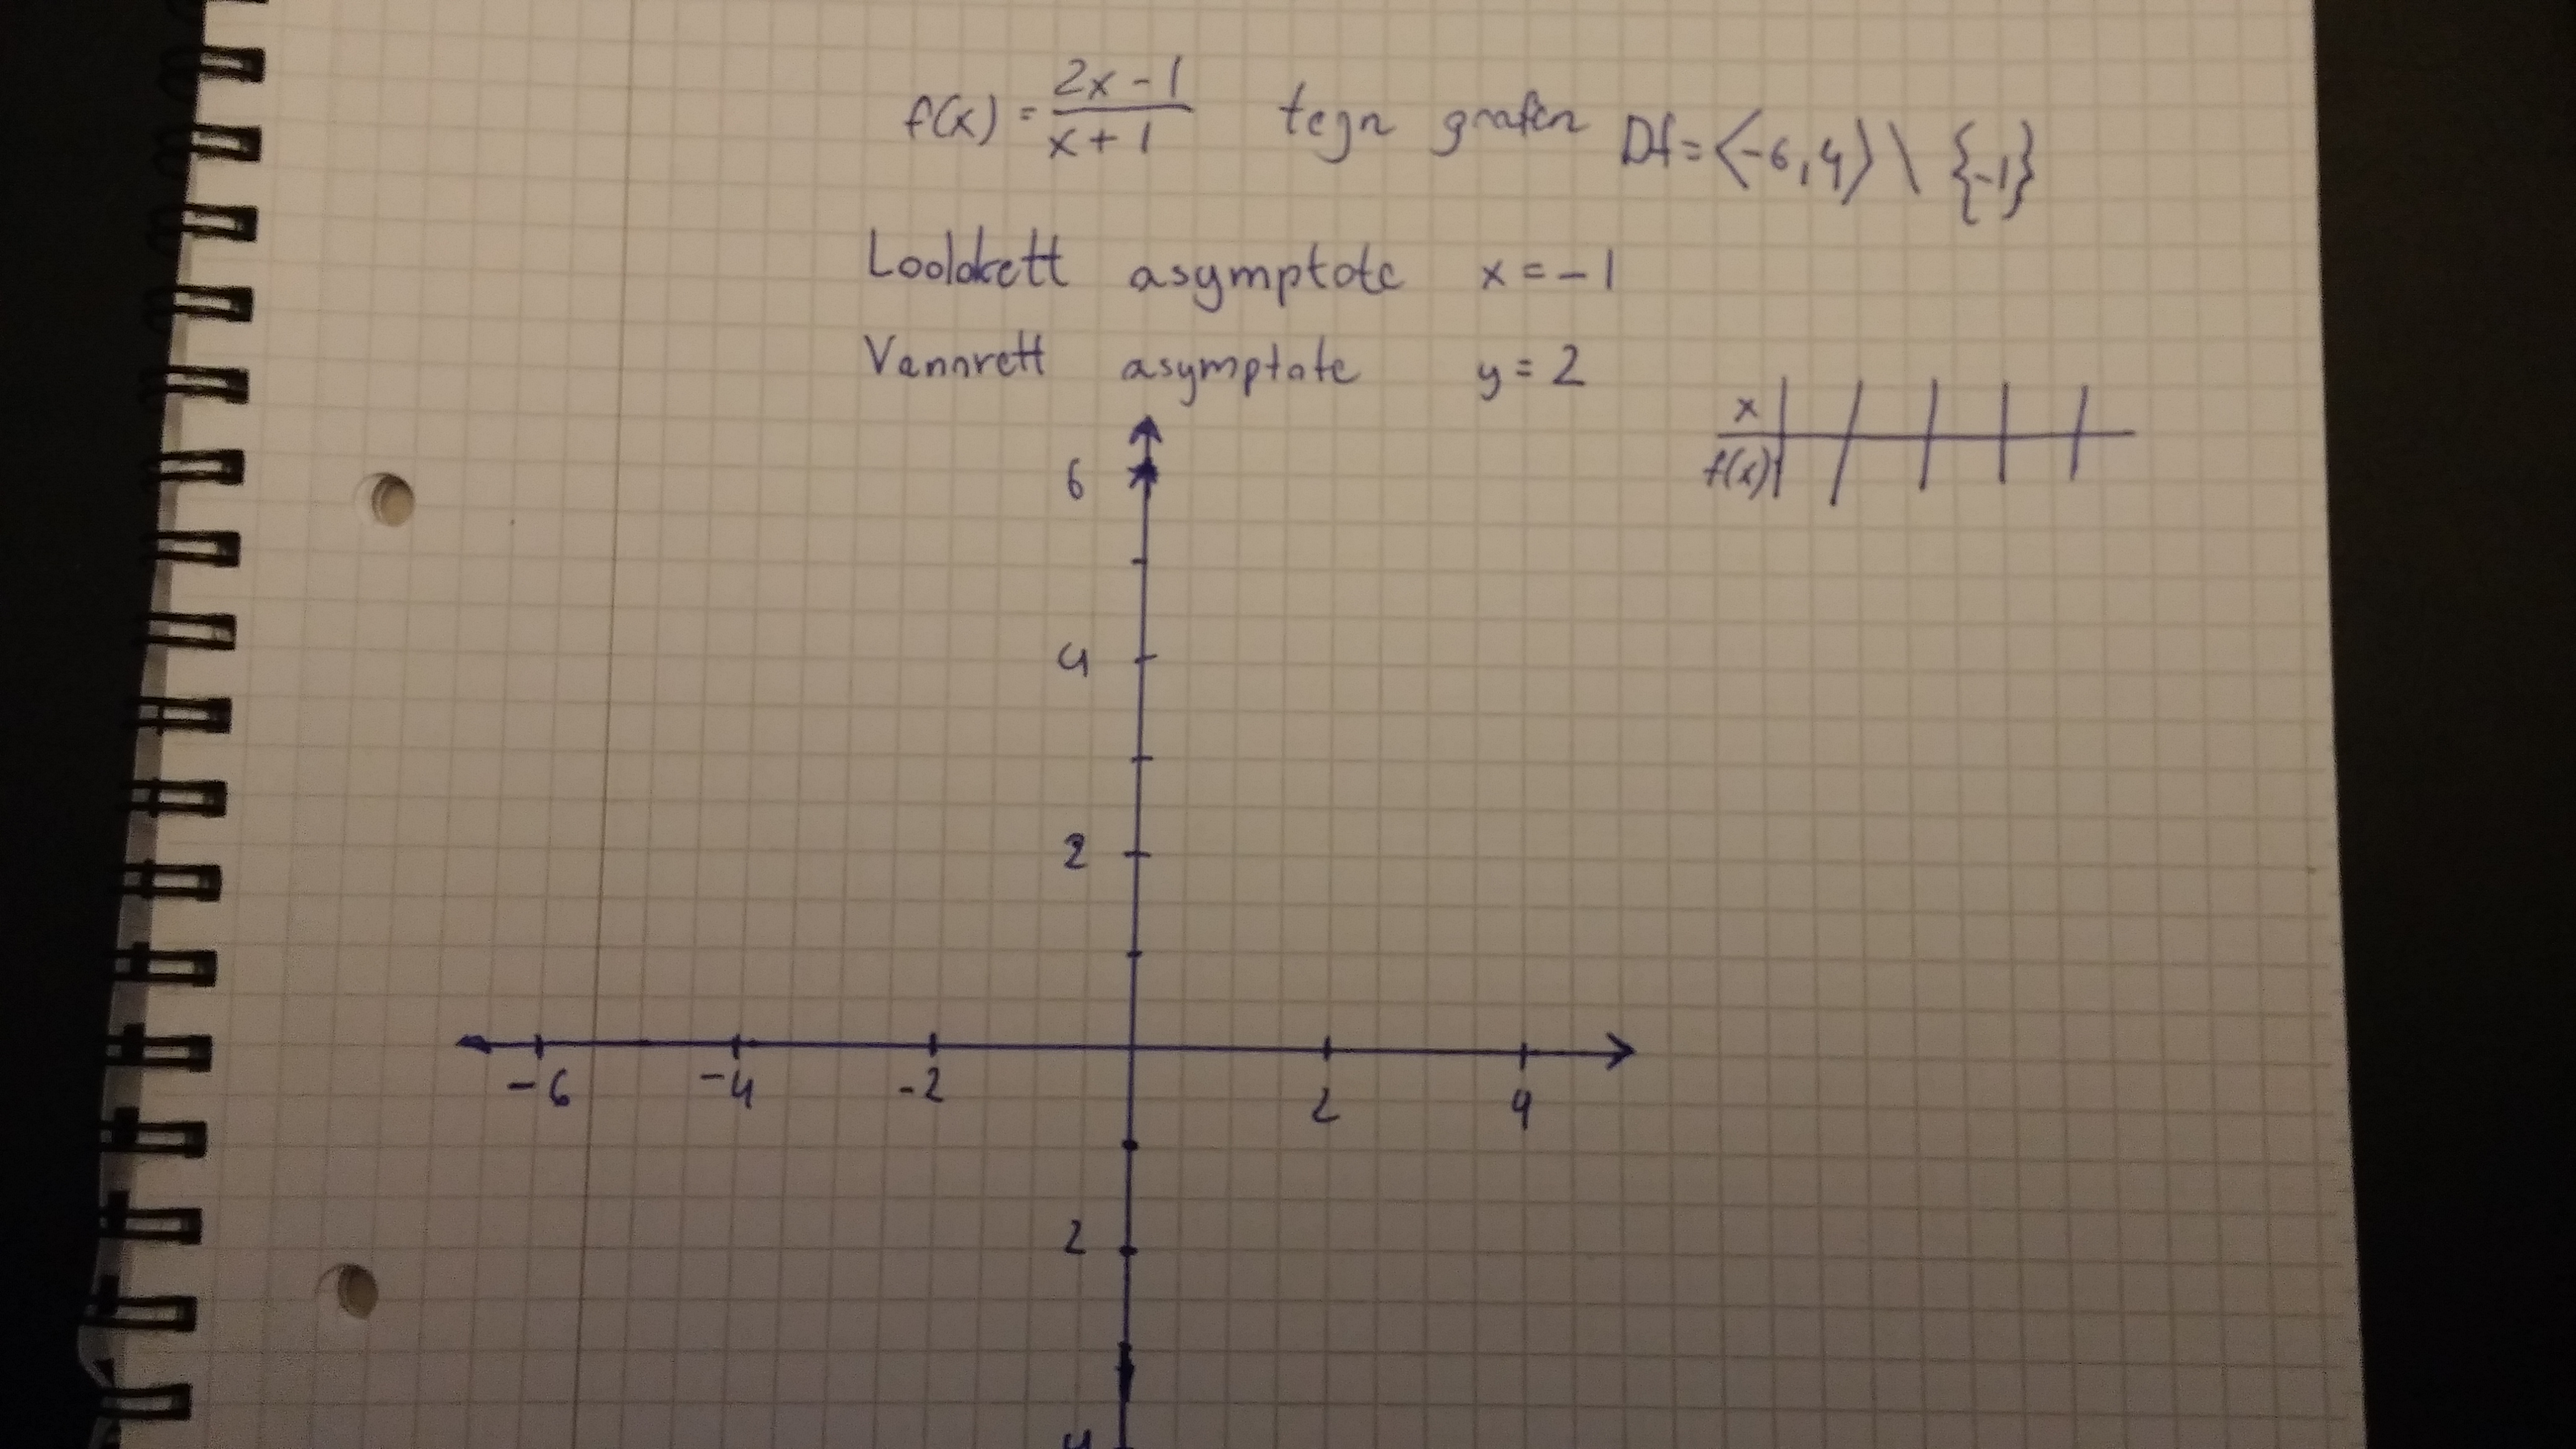 f(x) = 2x - 1 / x + 1 tegn grafen Df = ⟨-6, 4⟩ \ {-1}
Loddrett asymptote x = -1
Vannrett asymptote y = 2
x
f(x)
6
4
2
-6 -4 -2 2 4
2
4